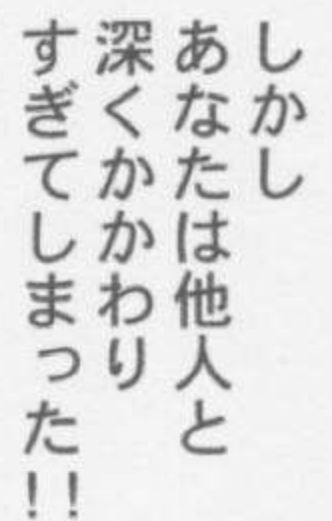 しかし
あなたは他人と
深くかかわり
すぎてしまった!!